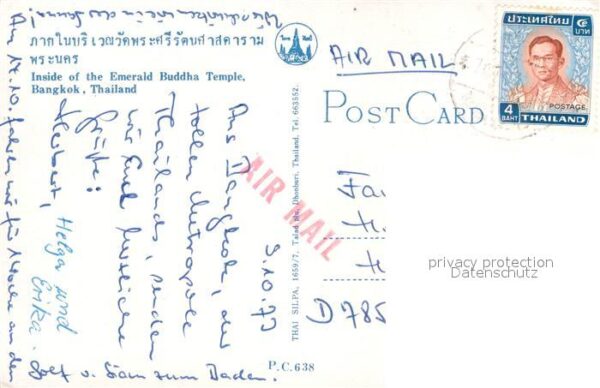 ภายในบริเวณวัดพระศรีรัตนศาสดาราม
พระนคร
Inside of the Emerald Buddha Temple,
Bangkok, Thailand
AIR MAIL
POST CARD
ประเทศไทย
๔
บาท
4
BAHT
POSTAGE
THAILAND
THAI SILPA, 1659/7, Talad Dhonburi, Thailand. Tel. 663552.
AIR MAIL
9.10.73
Aus Bangkok, der
tollen Metropole
Thailands, senden
wir Euch herzliche
Grüße!
Herbert, Helga und
Erika.
Am 14.10. fahren wir für 1 Woche an den
Golf v. Siam zum Baden.
Fa
H
H
D 785
privacy protection
Datenschutz
P.C.638